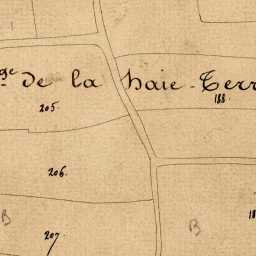 ge de la haie-Terr
205
188
206
B
B
207
18